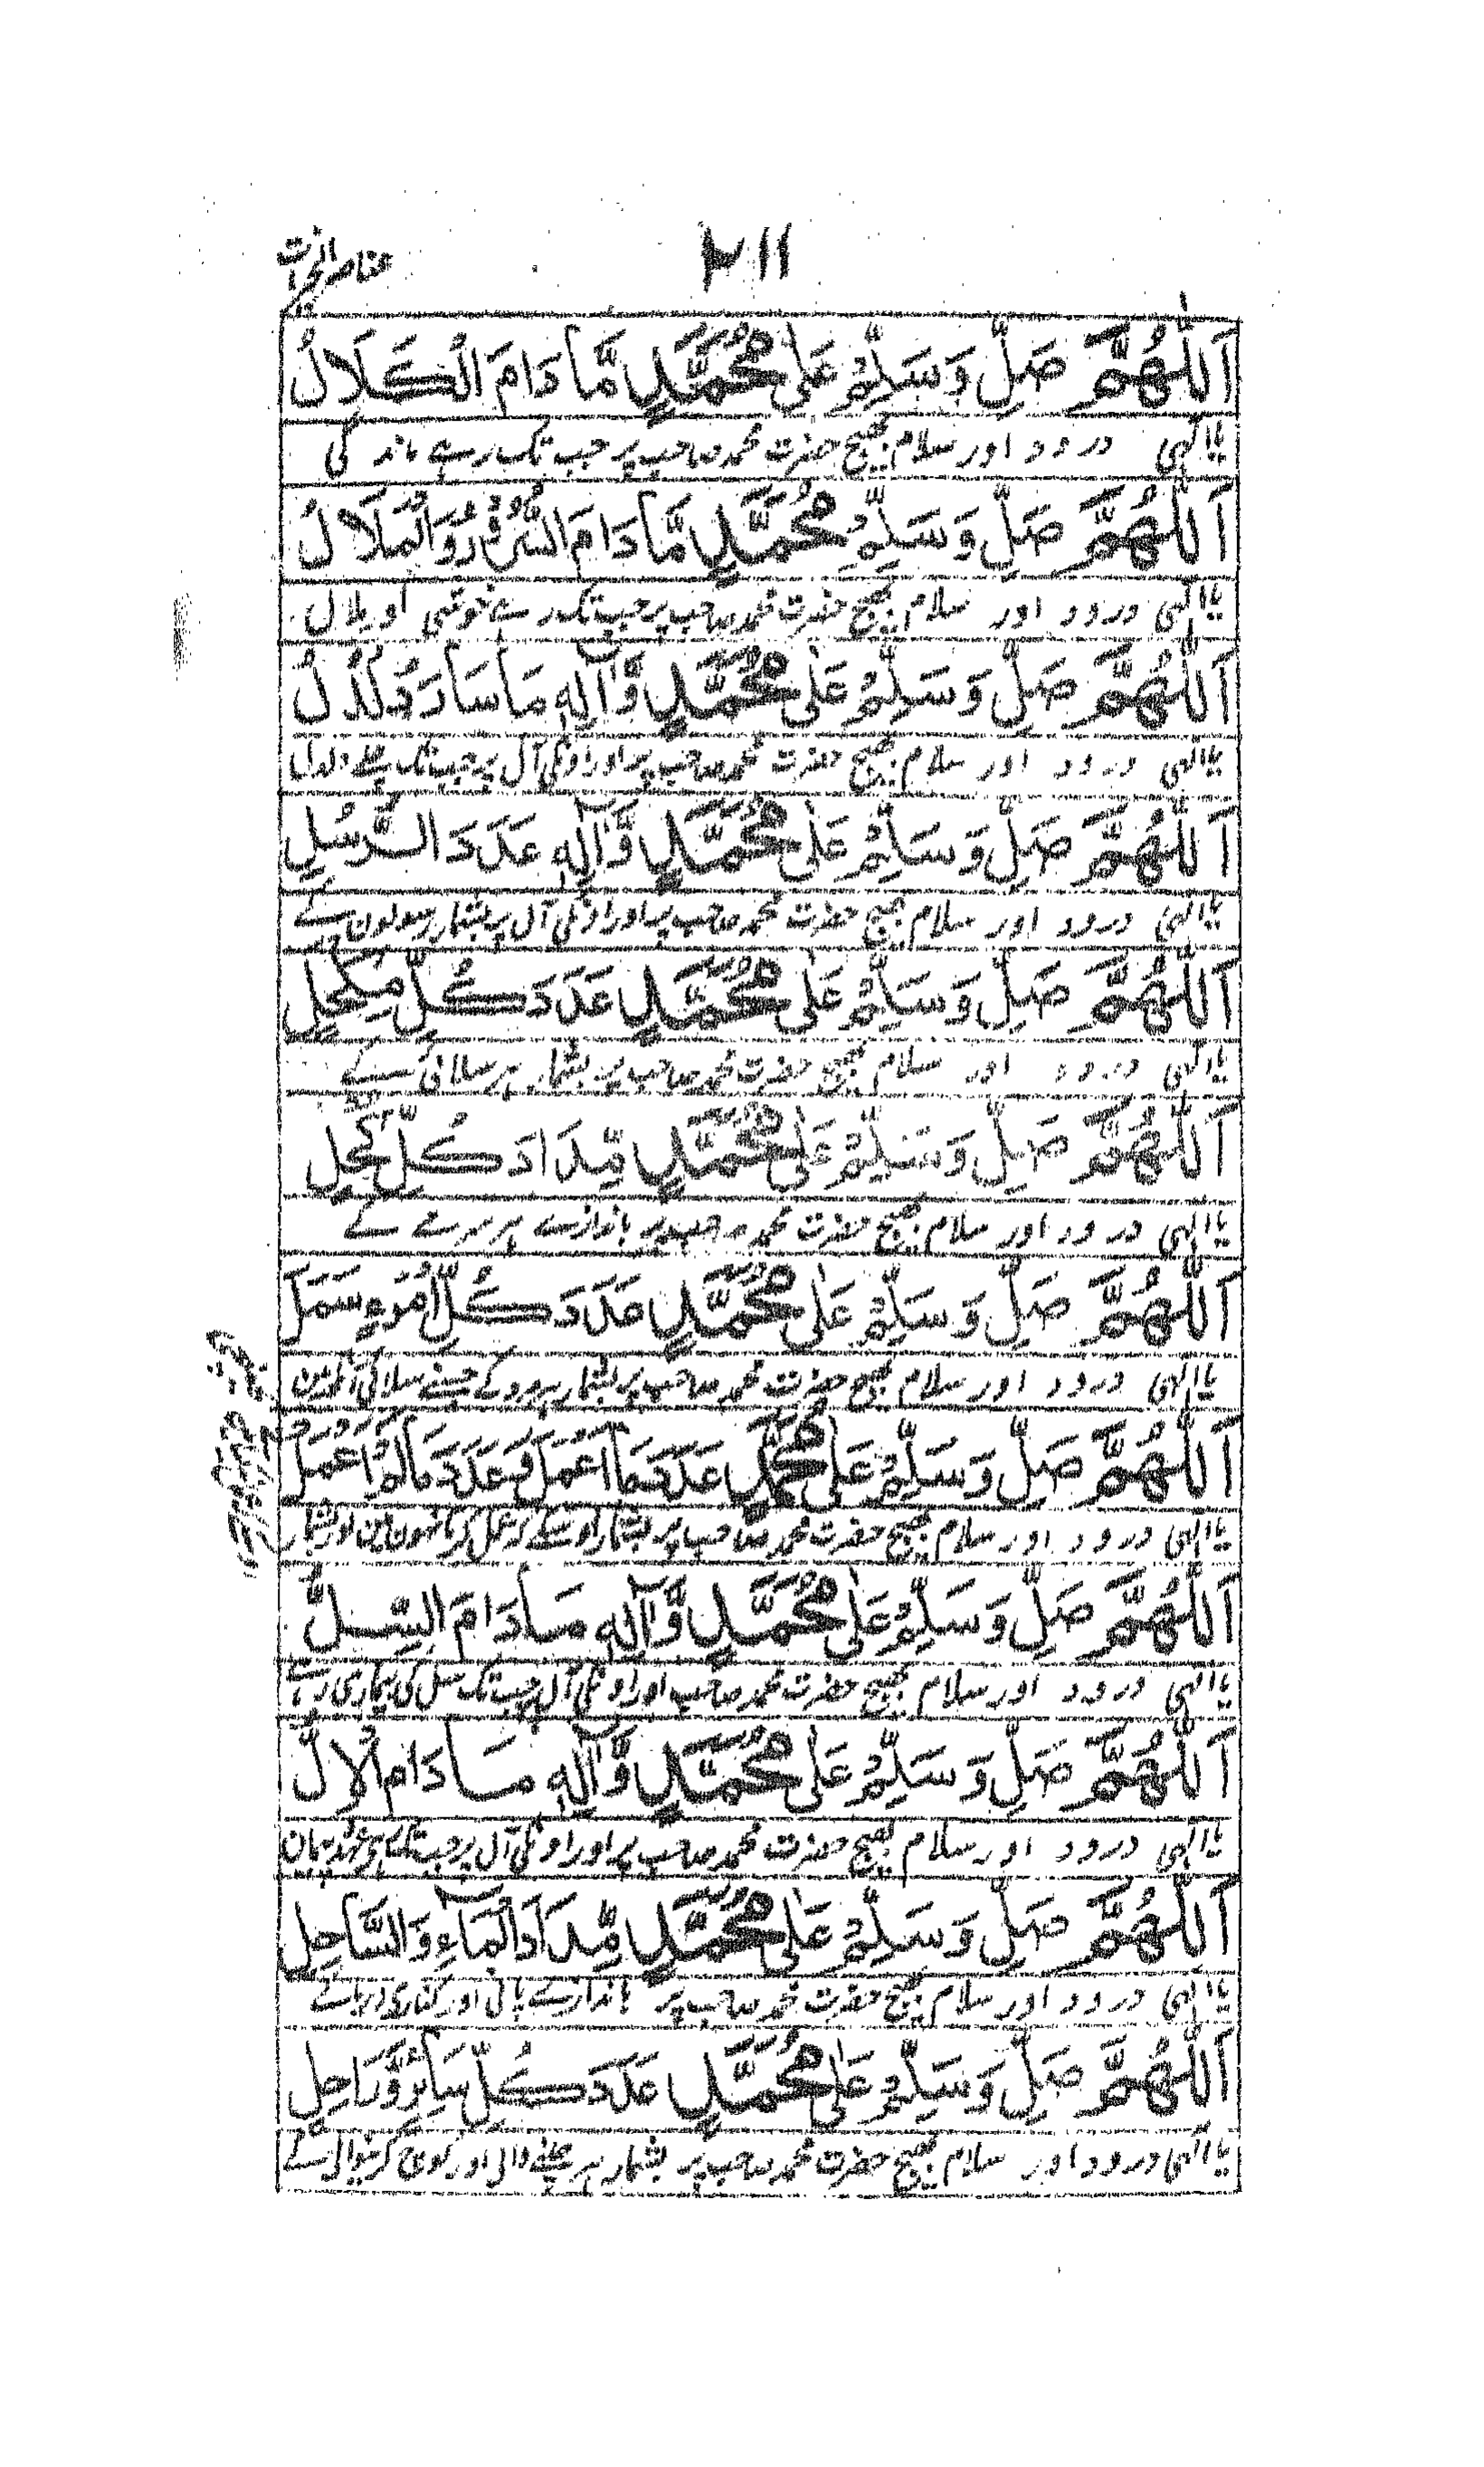 ۲۱۱
عناصر الخیرات
اَللّٰهُمَّ صَلِّ وَسَلِّمْ عَلٰی مُحَمَّدٍ مَّا دَامَ الْكَلَالُ
یا الٰہی درود اور سلام بھیج حضرت محمد صاحب پر جب تک رہے ماندگی
اَللّٰهُمَّ صَلِّ وَسَلِّمْ مُحَمَّدٍ مَّا دَامَ السُّرُوْرُ وَالْمَلَالُ
یا الٰہی درود اور سلام بھیج حضرت محمد صاحب پر جب تک رہے خوشی او ملال
اَللّٰهُمَّ صَلِّ وَسَلِّمْ عَلٰی مُحَمَّدٍ وَّاٰلِهٖ مَا سَارَ دُلْدُلُ
یا الٰہی درود اور سلام بھیج حضرت محمد صاحب پر اور اونکی آل پر جب تک چلے دلدل
اَللّٰهُمَّ صَلِّ وَسَلِّمْ عَلٰی مُحَمَّدٍ وَّاٰلِهٖ عَدَدَ الرُّسُلِ
یا الٰہی درود اور سلام بھیج حضرت محمد صاحب پر اور اونکی آل پر بشمار رسولون کے
اَللّٰهُمَّ صَلِّ وَسَلِّمْ عَلٰی مُحَمَّدٍ عَدَدَ كُلِّ مِكْحَلٍ
یا الٰہی درود اور سلام بھیج حضرت محمد صاحب پر بشمار ہر سلائی کے
اَللّٰهُمَّ صَلِّ وَسَلِّمْ عَلٰی مُحَمَّدٍ مِّدَادَ كُلِّ كُحْلٍ
یا الٰہی درود اور سلام بھیج حضرت محمد صاحب پر باندازے ہر سرمے کے
اَللّٰهُمَّ صَلِّ وَسَلِّمْ عَلٰی مُحَمَّدٍ عَدَدَ كُلِّ امْرَءٍ سَمَلَ
یا الٰہی درود اور سلام بھیج حضرت محمد صاحب پر بشمار ہر مرد کے جسنے سلائی
اَللّٰهُمَّ صَلِّ وَسَلِّمْ عَلٰی مُحَمَّدٍ عَدَدَ مَا اَعْمَلُ وَعَدَدَ مَا لَمْ اَعْمَلْ
یا الٰہی درود اور سلام بھیج حضرت محمد صاحب پر بشمار اوسکے کہ عمل کرتا ہون مین اور بشمار
اَللّٰهُمَّ صَلِّ وَسَلِّمْ عَلٰی مُحَمَّدٍ وَّاٰلِهٖ مَا دَامَ السِّلُّ
یا الٰہی درود اور سلام بھیج حضرت محمد صاحب اور اونکی آل پر جب تک سل کی بیماری رہے
اَللّٰهُمَّ صَلِّ وَسَلِّمْ عَلٰی مُحَمَّدٍ وَّاٰلِهٖ مَا دَامَ الْاِلُّ
یا الٰہی درود اور سلام بھیج حضرت محمد صاحب پر اور اونکی آل پر جب تک
اَللّٰهُمَّ صَلِّ وَسَلِّمْ عَلٰی مُحَمَّدٍ مِّدَادَ الْمَاۤءِ وَالسَّاحِلِ
یا الٰہی درود اور سلام بھیج حضرت محمد صاحب پر باندازے پانی اور کناری دریا کے
اَللّٰهُمَّ صَلِّ وَسَلِّمْ عَلٰی مُحَمَّدٍ عَدَدَ كُلِّ سَائِرٍ وَّرَاحِلٍ
یا الٰہی درود اور سلام بھیج حضرت محمد صاحب پر بشمار ہر چلنے والی اور کوچ کرنیوالی کے